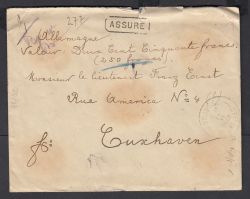 277
ASSURÉ
Allemagne
Valeur Deux Cent Cinquante francs.
(250 francs)
Monsieur le lieutenant Franz Ernst
Rua America No 4
Cuxhaven